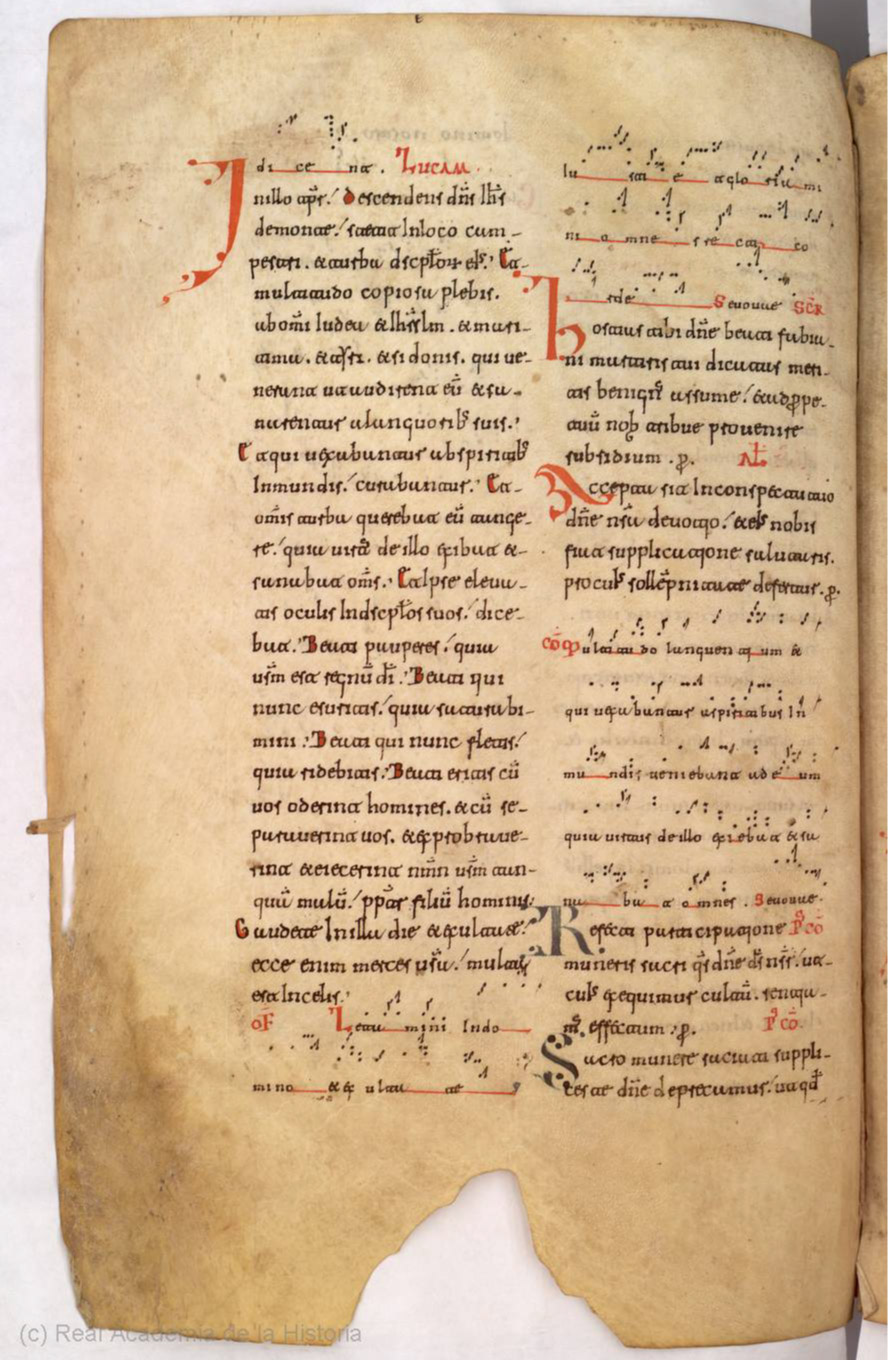 di ce na . Lucam
In illo tp̄r̄s . Descendens dn̄s Ihs̄
demonte / stetit In loco cam-
pestri . & turba discpl̄or eī . Et
multitudo copiosa plebis.
ab om̄i Iudea & Ihrs̄lm . & mari-
tima . & tyri . & sidonis . qui ue-
nerunt ut audirent eū & sa-
narentur alanguorib; suis.
Et qui uexabantur abspiritib;
Inmundis / curabantur. Et
om̄is turba querebat eū tange-
re / quia uirt̄ de illo exibat &
sanabat om̄s. Et Ipse eleua-
tis oculis In discpl̄os suos / dice-
bat. Beati pauperes / quia
us̄m est regnū dī. Beati qui
nunc esuritis / quia saturabi-
mini. Beati qui nunc fletis /
quia ridebitis. Beati eritis cū
uos oderint homines . & cū se-
parauerint uos . & exprobraue-
rint & eiecerint nm̄n us̄m tan-
quā malū / pp̄ter filiū hominis.
Gaudete In illa die & exultate /
ecce enim merces ur̄a / multa
est In celis.
OF Letamini In do
mino & ex ulta te
Iu sti e & glo ria mi
ni o mne s re c to co
rde Seuouae SCR
Hostias tibi dn̄e beati fabia-
ni martiris tui dicatas meri-
tis benign̄ assume / & ad ppe-
tuū nob̄ tribue prouenire
subsidium . p̄. AL
Accepta sit In conspectu tuo
dn̄e nr̄a deuotio / & eī nobis
fiat supplicatione salutaris.
pro cuī sollēpnitate defertur. p̄.
CO Multitudo languentium &
qui uexabantur aspiritibus In
mundis ueniebant ad e um
quia uirtus de illo exiebat & sa
na ba t omnes . Seuouae.
Refecti participatione P CO
muneris sacri qs̄ dn̄e ds̄ nr̄ / ut
cuī exequimur cultū . sentia-
m̄ . effectum . p̄. P CO
Sacro munere satiati suppli-
ces te dn̄e deprecamur / ut qd̄